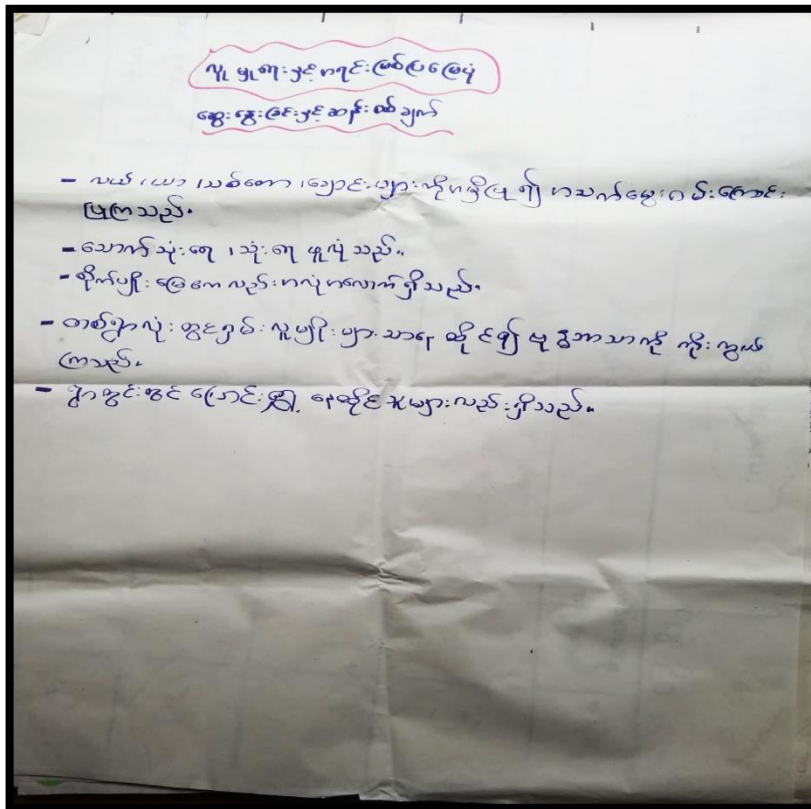 လူမှုရေးနှင့်အရင်းအမြစ်ပြမြေပုံ
ဆွေးနွေးခြင်းနှင့်ဆန်းစစ်ချက်
- လယ်၊ယာ၊သစ်တော၊ချောင်းများကိုအမှီပြု၍ အသက်မွေးဝမ်းကြောင်း
ပြုကြသည်။
- သောက်သုံးရေ၊သုံးရေ ဖူလုံသည်။
- စိုက်ပျိုးမြေကလည်းအလုံအလောက်ရှိသည်။
- တစ်ရွာလုံးတွင်ရှမ်းလူမျိုးများသာနေထိုင်၍ ဗုဒ္ဓဘာသာကို ကိုးကွယ်
ကြသည်။
- ရွာတွင်းတွင် ပြောင်းရွှေ့နေထိုင်သူများလည်းရှိသည်။